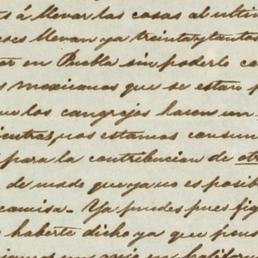 s á llevar las cosas al ultim
ses llevan ya treinta y tantos
er en Puebla sin poderlo co
s mexicanos que se estan p
ue los cangrejos hacen un
ientras nos estamos consum
para la contribucion de otr
de modo que ya no es posib
camisa. Ya puedes pues fig
haberte dicho ya que pens